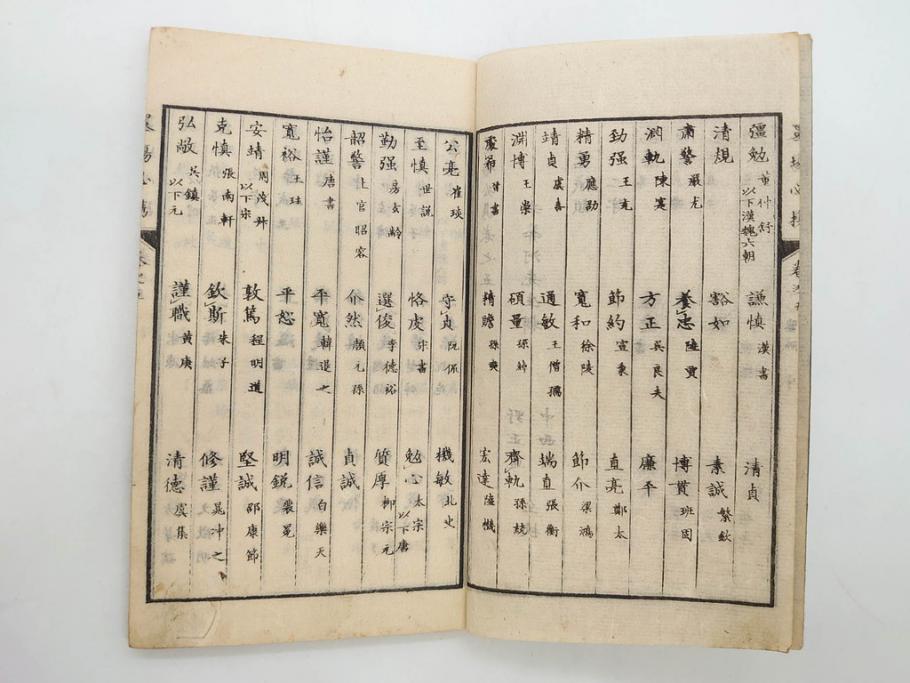 彊勉 董仲舒 以下漢魏六朝 謙慎 漢書 清貞
清規 豁如 素誠 繁欽
肅警 嚴尤 養忠 陸賈 博貫 班固
洞軌 陳寔 方正 吳良夫 廉平
勁強 王充 節約 宣秉 直亮 鄭太
精勇 應劭 寬和 徐陵 節介 梁鴻
靖貞 虞喜 通敏 王僧孺 端直 張衡
淵博 王 碩量 孫綽 齊軌 孫兢
晉書 精贍 孫爽 宏達 陸機
公亮 崔琰 守貞 阮侃 機敏 北史
至慎 世說 恪虔 勉心 太宗 以下唐
勤强 房玄齡 選俊 李德裕 質厚 柳宗元
韶警 上官昭容 介然 顏元孫 貞誠
怡謹 唐書 平寬 韓退之 誠信 白樂天
寬裕 王珪 平恕 明銳 裴冕
安靖 周茂叔 以下宋 敦篤 程明道 堅誠 邵康節
克慎 張南軒 欽斯 朱子 修謹 晁沖之
弘敞 吳鎮 以下元 謹職 黄庚 清德 虞集